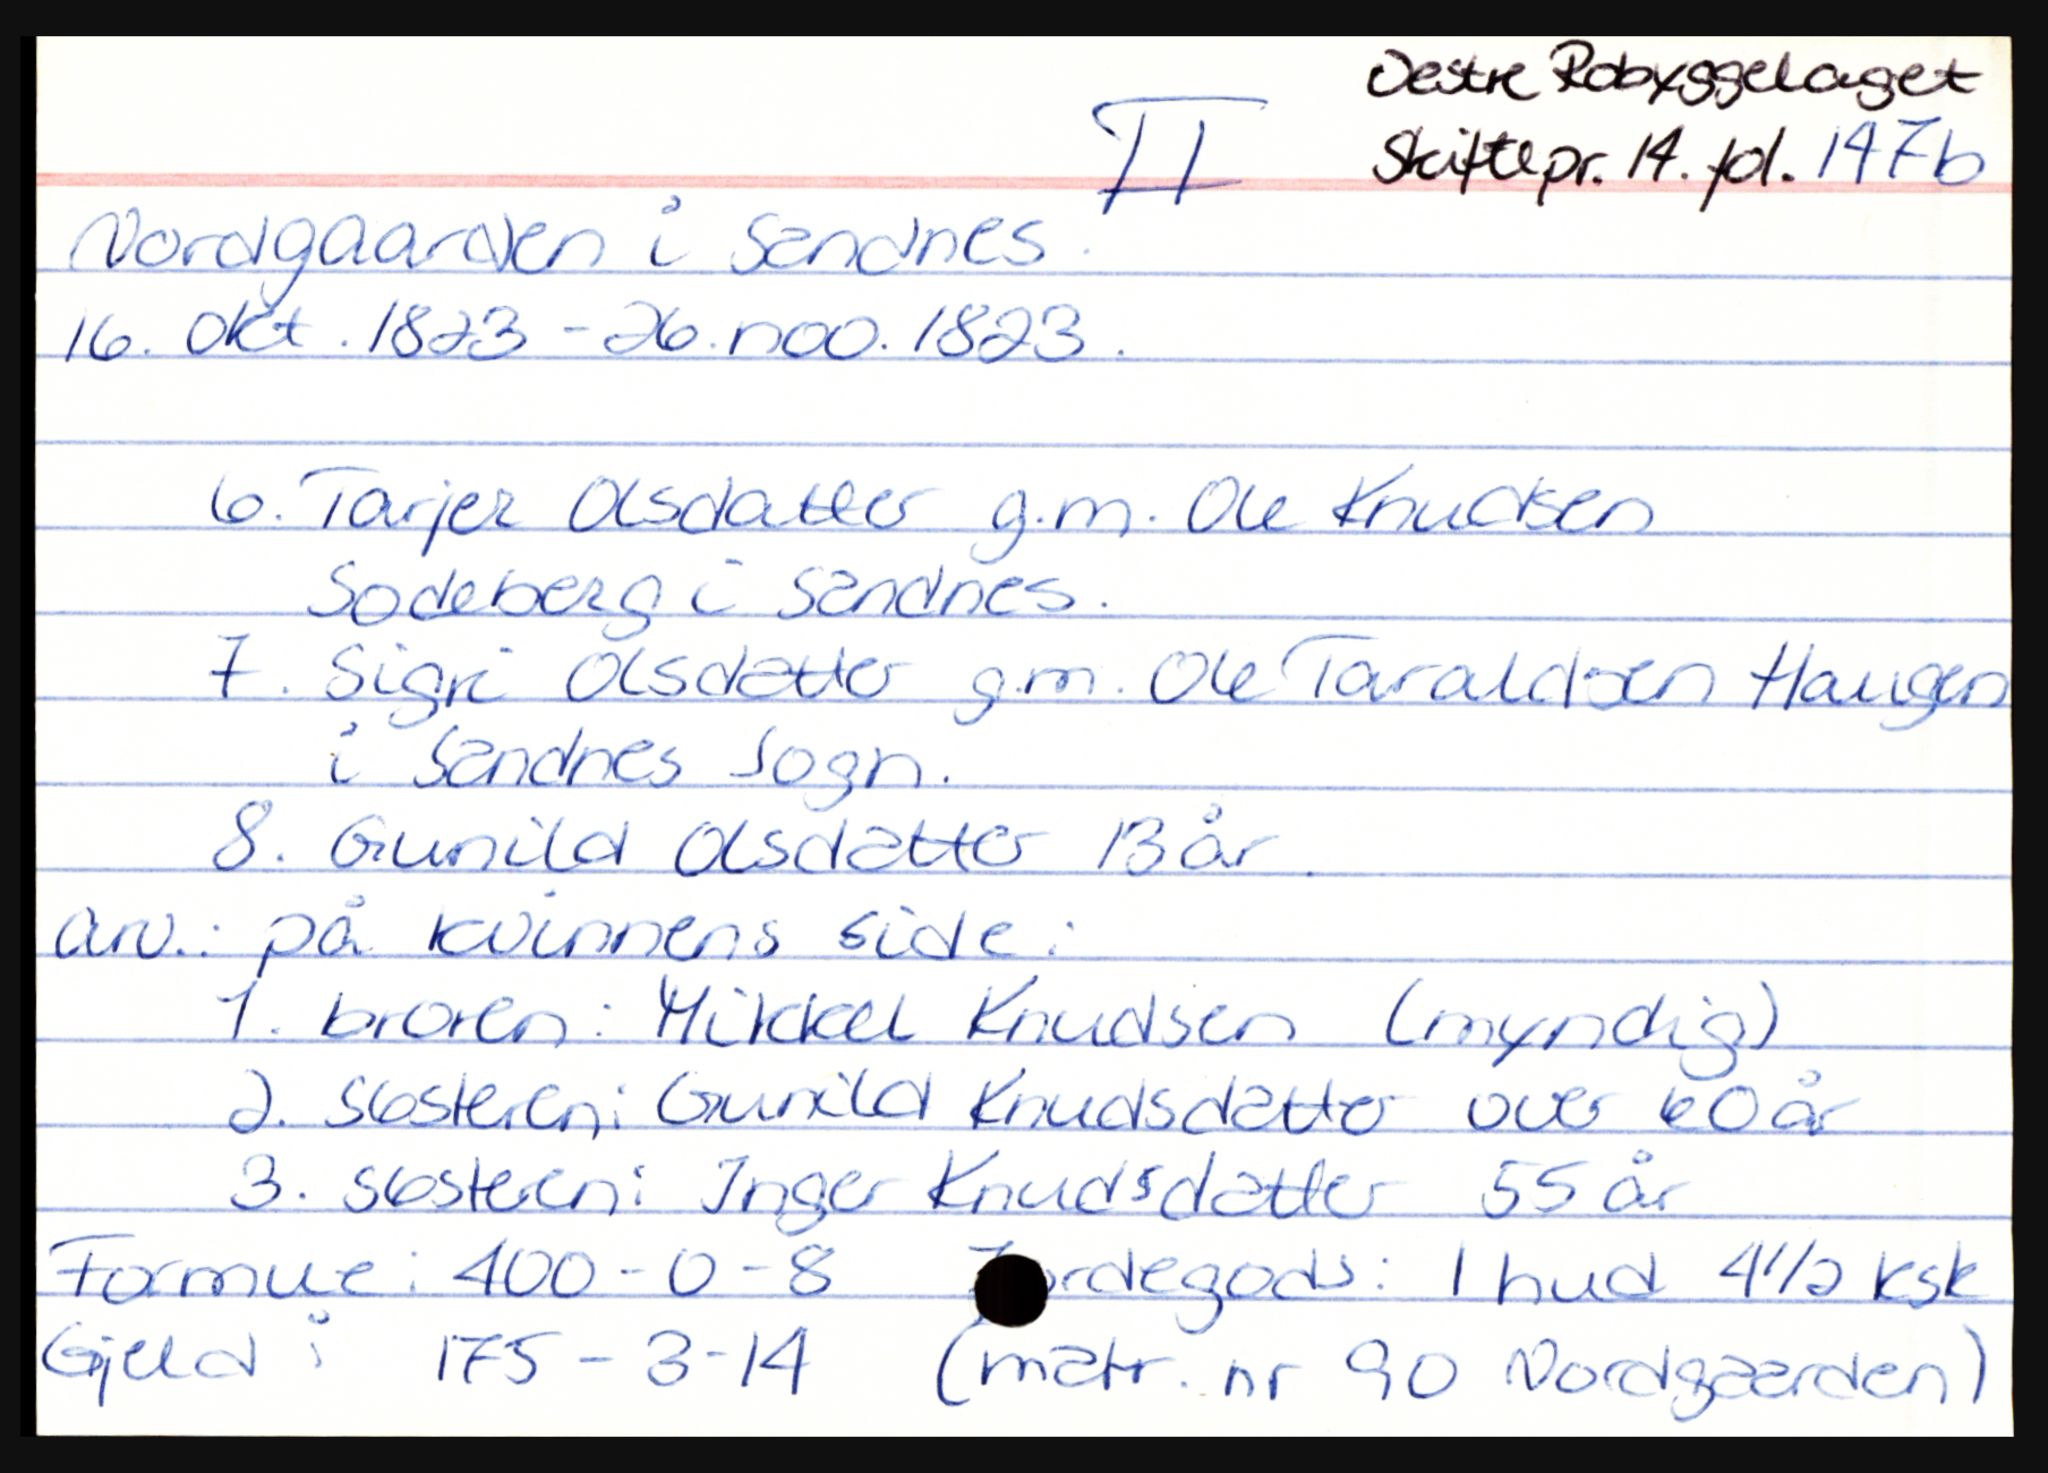 Vestre Robyggelaget
II
Skiftepr. 14. fol. 147b
Nordgaarden i Sandnes.
16. okt. 1823 - 26. nov. 1823.
6. Tarjer Olsdatter g.m. Ole Knudsen
Sodeberg i Sandnes.
7. Sigri Olsdatter g.m. Ole Taraldsen Haugen
i Sandnes Sogn.
8. Gunild Olsdatter 13 år.
arv.: på kvinnens side:
1. broren: Mikkel Knudsen (myndig)
2. søsteren: Gunild Knudsdatter over 60 år
3. søsteren: Inger Knudsdatter 55 år
Formue: 400-0-8 Jordegods: 1 hud 4 1/2 ksk
Gjeld: 175-3-14 (matr. nr 90 Nordgaarden)